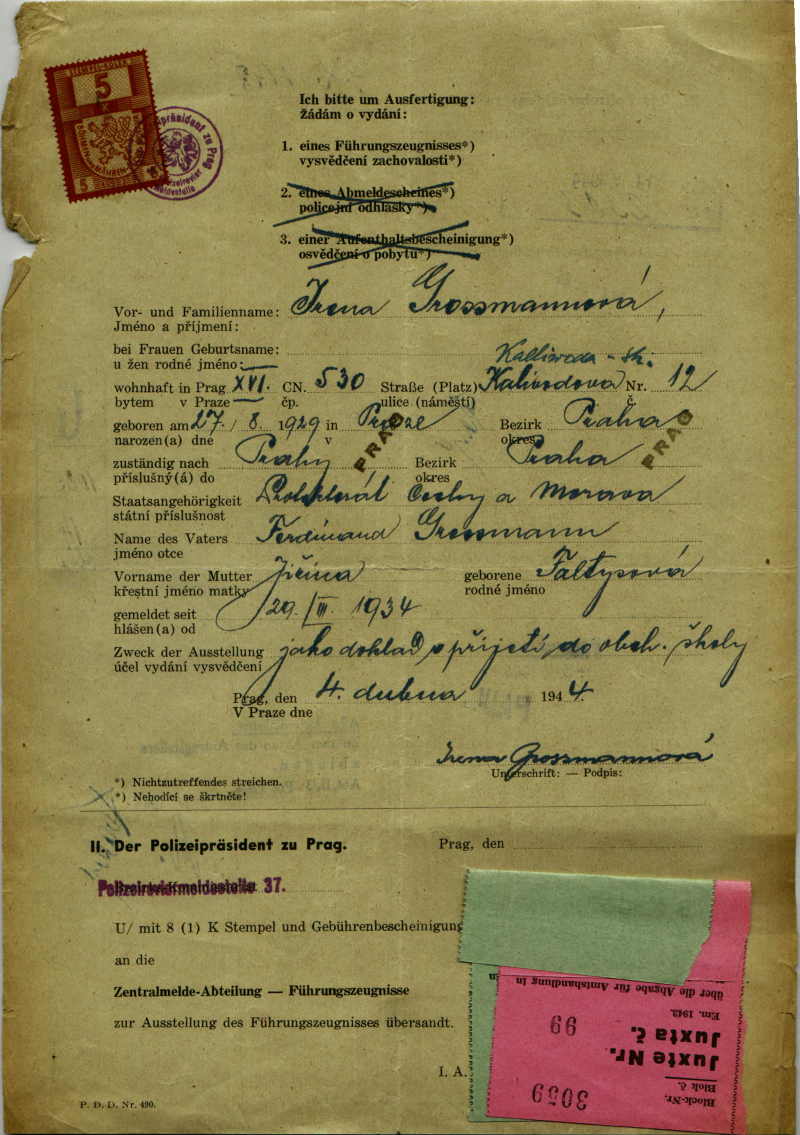 STEMPEL-KOLEK
5
K
BÖHMEN u. MÄHREN
5
präsident zu Prag
Meldestelle
Ich bitte um Ausfertigung:
Žádám o vydání:
1. eines Führungszeugnisses*)
vysvědčení zachovalosti*)
2. eines Abmeldescheines*)
policejní odhlášky*)
3. einer Aufenthaltsbescheinigung*)
osvědčení o pobytu*)
Vor- und Familienname: Irena Grossmannová,
Jméno a příjmení:
bei Frauen Geburtsname:
u žen rodné jméno:
Kalliwoda - str.
wohnhaft in Prag XVI. CN. 530 Straße (Platz) Kalivodova Nr. 12
bytem v Praze čp. ulice (náměstí) č.
geboren am 27. / 8. 1929 in Praze Bezirk Praha
narozen(a) dne v okres
PRAG PRAG
zuständig nach Prahy Bezirk Praha
příslušný(á) do okres
Staatsangehörigkeit Protektorát Čechy a Morava
státní příslušnost
Name des Vaters Ferdinand Grossmann
jméno otce
Vorname der Mutter Jiřina geborene Faltysová
křestní jméno matky rodné jméno
gemeldet seit 29. III. 1934
hlášen(a) od
Zweck der Ausstellung jako doklad o přijetí do obch. školy
účel vydání vysvědčení
Prag, den 4. dubna 1944.
V Praze dne
Irena Grossmannová
Unterschrift: — Podpis:
*) Nichtzutreffendes streichen.
*) Nehodící se škrtněte!
II. Der Polizeipräsident zu Prag. Prag, den
Polizeireviermeldestelle 37.
U/ mit 8 (1) K Stempel und Gebührenbescheinigung
an die
Zentralmelde-Abteilung — Führungszeugnisse
zur Ausstellung des Führungszeugnisses übersandt.
I. A.
über die Abgabe für Amtshandlung in
Em. 1942.
99
Juxta č.
Juxte Nr.
Blok č.
Block-Nr.
3059
P. D. D. Nr. 490.